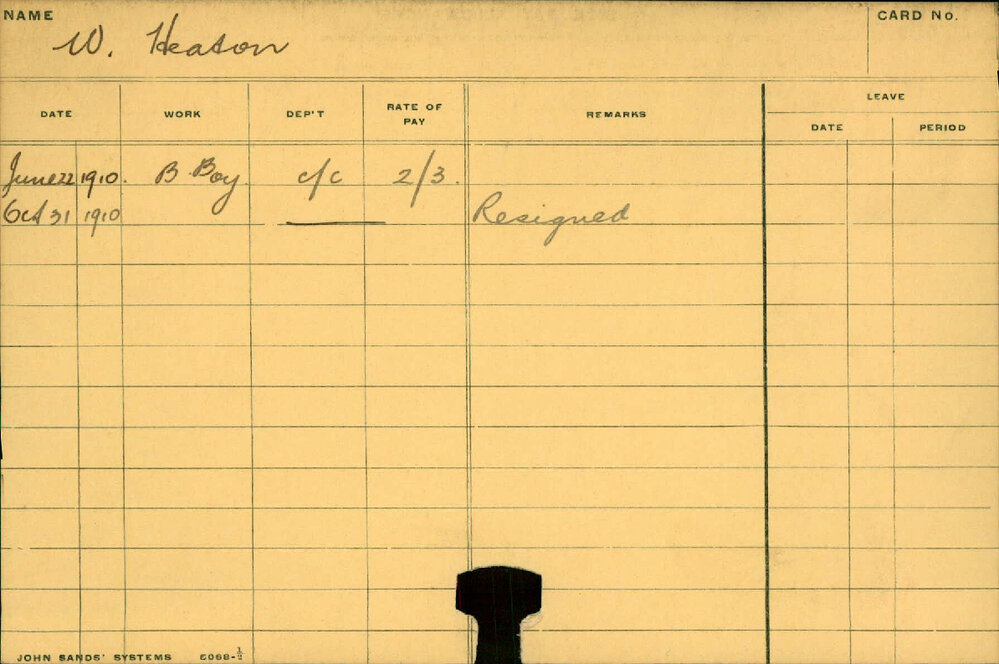 NAME
W. Heaton
CARD No.
DATE WORK DEP'T RATE OF PAY REMARKS LEAVE
DATE PERIOD
June 22 1910. B. Boy c/c 2/3.
Oct 31 1910 Resigned
JOHN SANDS' SYSTEMS 6068-½